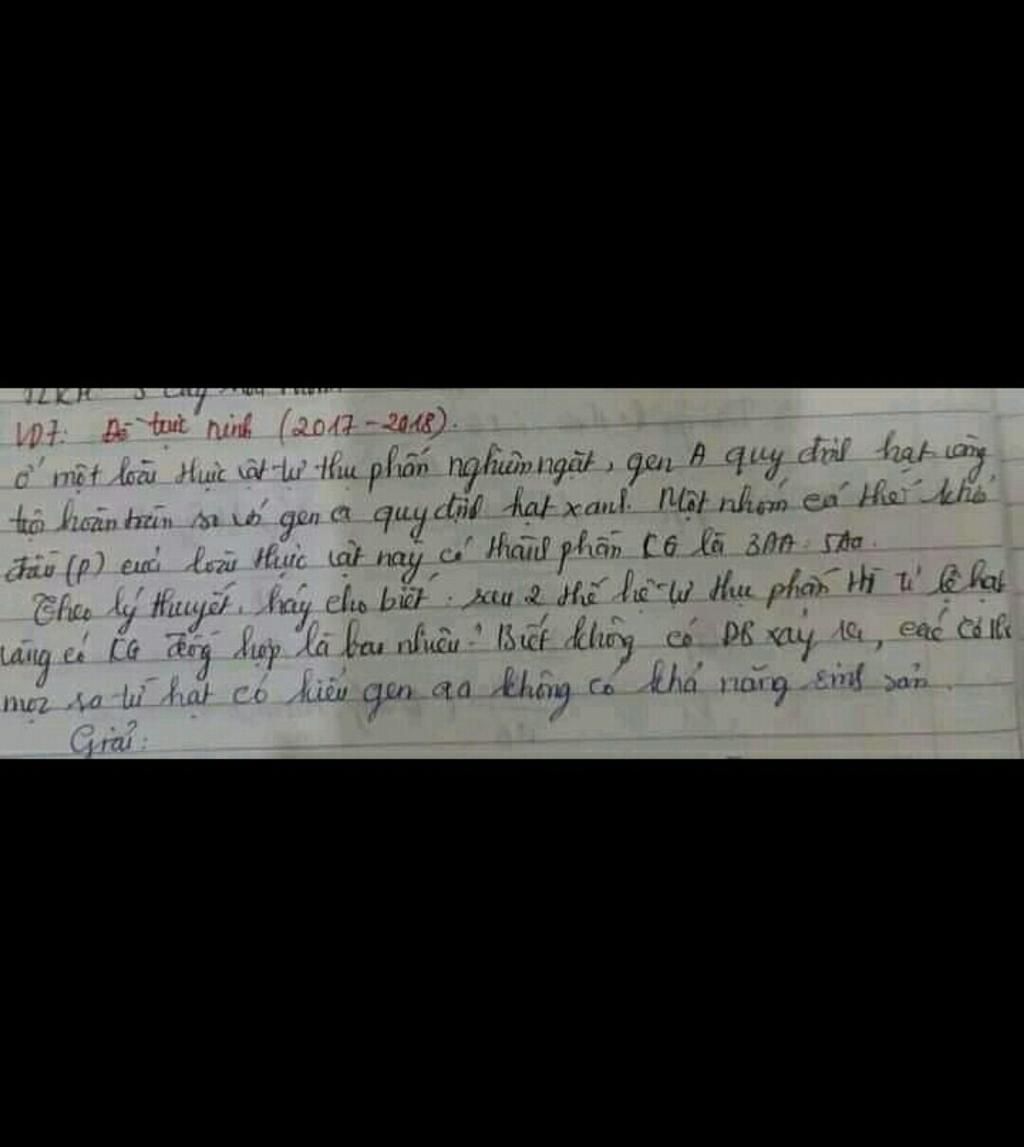 VD7: Đề trực ninh (2017-2018).
Ở một loài thực vật tự thụ phấn nghiêm ngặt, gen A quy định hạt vàng
trội hoàn toàn so với gen a quy định hạt xanh. Một nhóm cá thể khởi
đầu (P) của loài thực vật này có thành phần KG là 3AA : 5Aa.
Theo lý thuyết, hãy cho biết: sau 2 thế hệ tự thụ phấn thì tỉ lệ hạt
vàng có KG đồng hợp là bao nhiêu? Biết không có ĐB xảy ra, các cá thể
mọc ra từ hạt có kiểu gen aa không có khả năng sinh sản.
Giải: